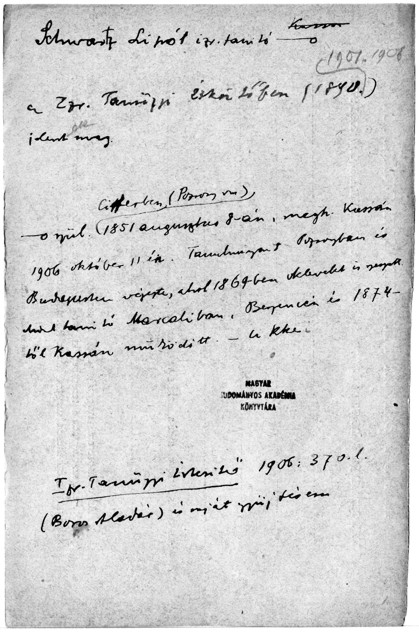 Schwartz Lipól izr. tanító —o Kassa
1901. 1906
a Izr. Tanügyi Értesítőben (1898.)
jelent meg.
Cifferben, (Pozsony vm),
—o szül. (1851 augusztus 8-án, megh. Kassán
1906 október 11-én. Tanulmányait Pozsonyban és
Budapesten végezte, ahol 1869-ben oklevelet is nyert.
tanító Marcaliban, és 1874-
től Kassán működött. —
MAGYAR
TUDOMÁNYOS AKADÉMIA
KÖNYVTÁRA
Izr. Tanügyi Értesítő 1906: 370. l.
(Boros Aladár) és saját gyűjtésem